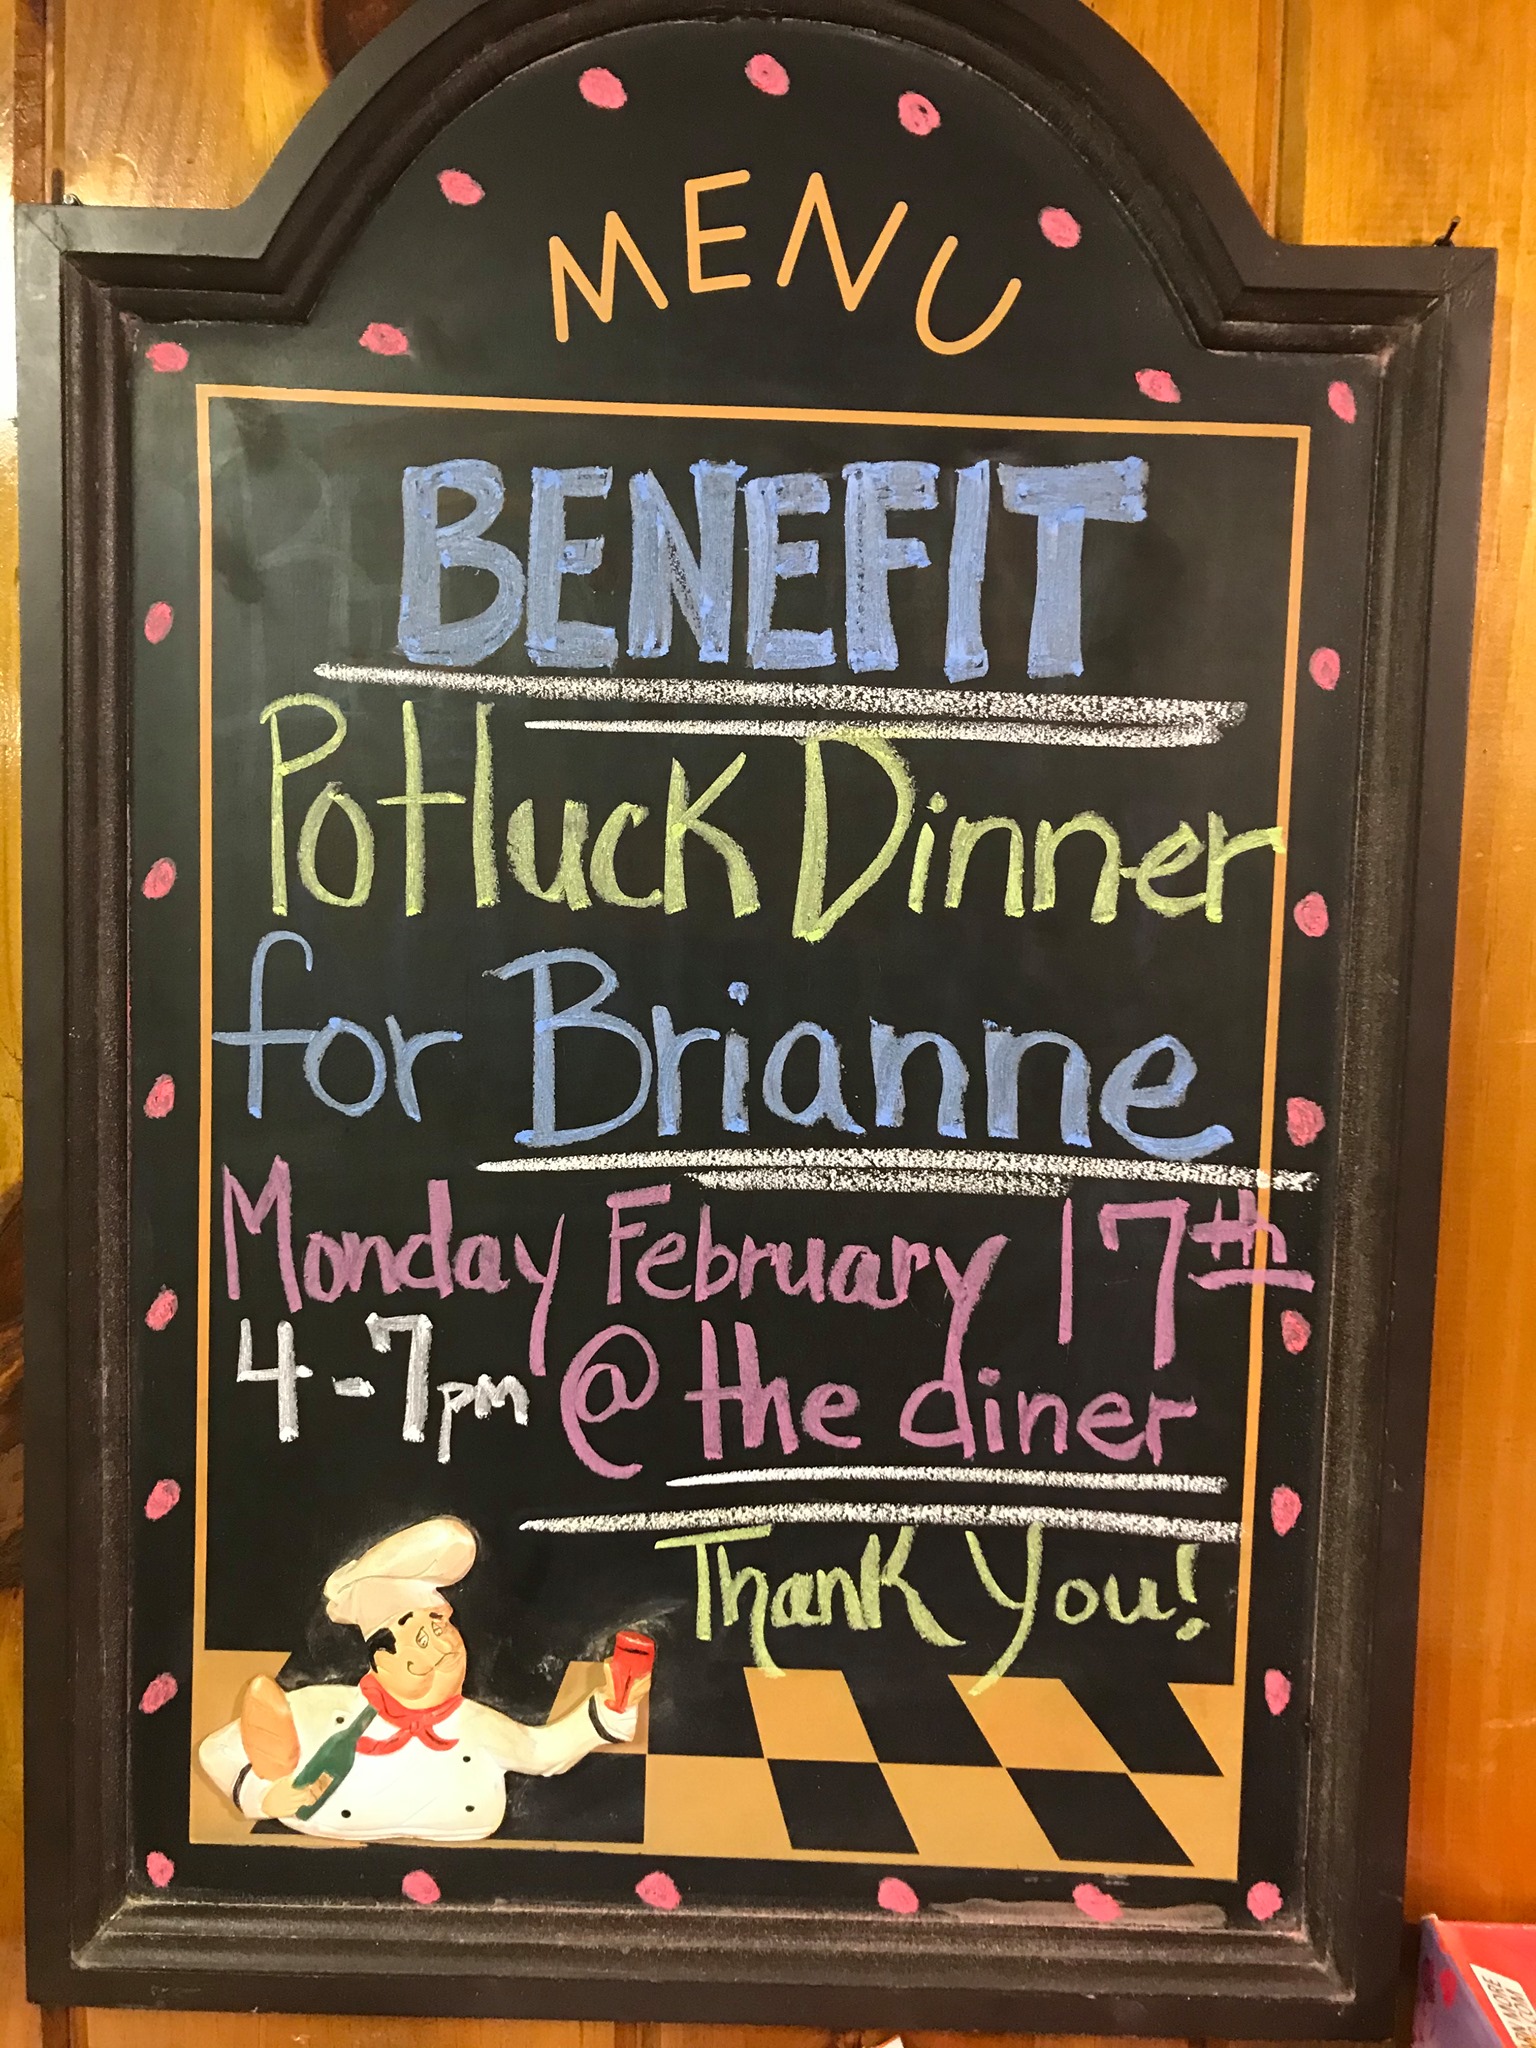 MENU
BENEFIT
Potluck Dinner
for Brianne
Monday February 17th
4-7pm @ the diner
Thank You!